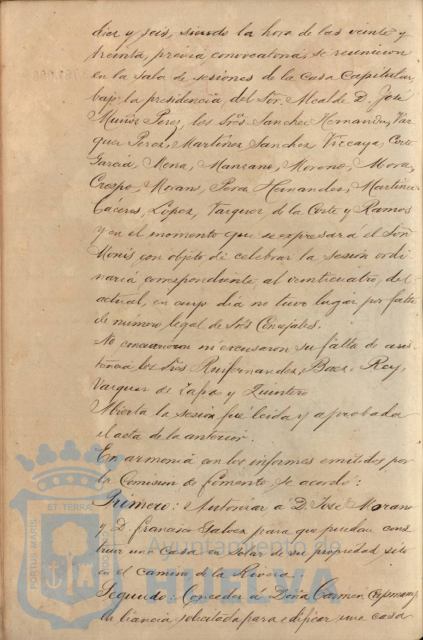 diez y seis, siendo la hora de las veinte y
treinta, previa convocatoria, se reunieron
en la Sala de sesiones de la Casa Capitular,
bajo la presidencia del Sor. Alcalde D. José
Muñoz Perez, los Sres Sanchez Hernandez, Vaz
quez Perez, Martinez Sanchez, Vizcaya, Corte
Garcia, Mena, Manzano, Moreno, Mora,
Crespo, Moran, Perez Hernandez, Martinez
Cáceres, Lopez, Vazquez de la Corte y Ramos
y en el momento que se expresará el Sor
Monis con objeto de celebrar la sesión ordi
naria correspondiente al veinticuatro del
actual, en cuyo dia no tuvo lugar por falta
de número legal de Sres Concejales.
No concurrieron ni excusaron su falta de asis
tencia los Sres Ruifernandez, Baez, Rey,
Vazquez de Zapa y Quintero
Abierta la sesión fué leida y aprobada
el acta de la anterior.
En armonia con los informes emitidos por
la Comision de fomento se acordó:
Primero: Autorizar á D. José Morano
y D. Francisco Galvez para que puedan cons
truir una casa en Solar de su propiedad, sito
en el camino de la Rivera
Segundo: Conceder a Doña Carmen
la licencia solicitada para edificar una casa
PORTUS MARIS
ET TERRÆ
Ayuntamiento de
HUELVA